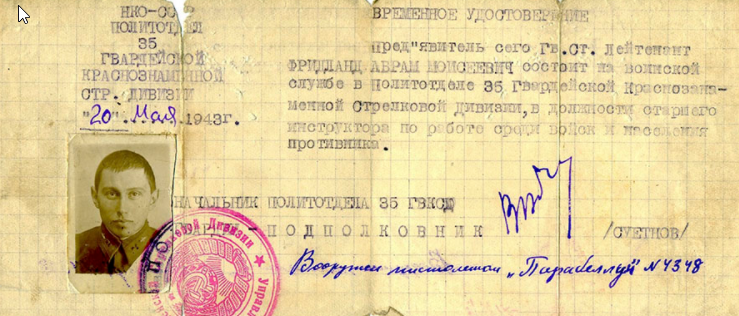 НКО-СССР
ПОЛИТОТДЕЛ
35
ГВАРДЕЙСКОЙ
КРАСНОЗНАМЕННОЙ
СТР. ДИВИЗИИ
"20" Мая 1943г.
ВРЕМЕННОЕ УДОСТОВЕРЕНИЕ
Пред"явитель сего Гв.Ст. Лейтенант
ФРИДЛАНД АВРАМ МОИСЕЕВИЧ состоит на воинской
службе в Политотделе 35 Гвардейской Краснозна-
менной Стрелковой Дивизии, в должности старшего
инструктора по работе среди войск и населения
противника.
НАЧАЛЬНИК ПОЛИТОТДЕЛА 35 ГВКСД
ПОДПОЛКОВНИК /СУЕТНОВ/
Вооружен пистолетом „Парабеллум" N 4348
Стрелковой Дивизии ★ Управ